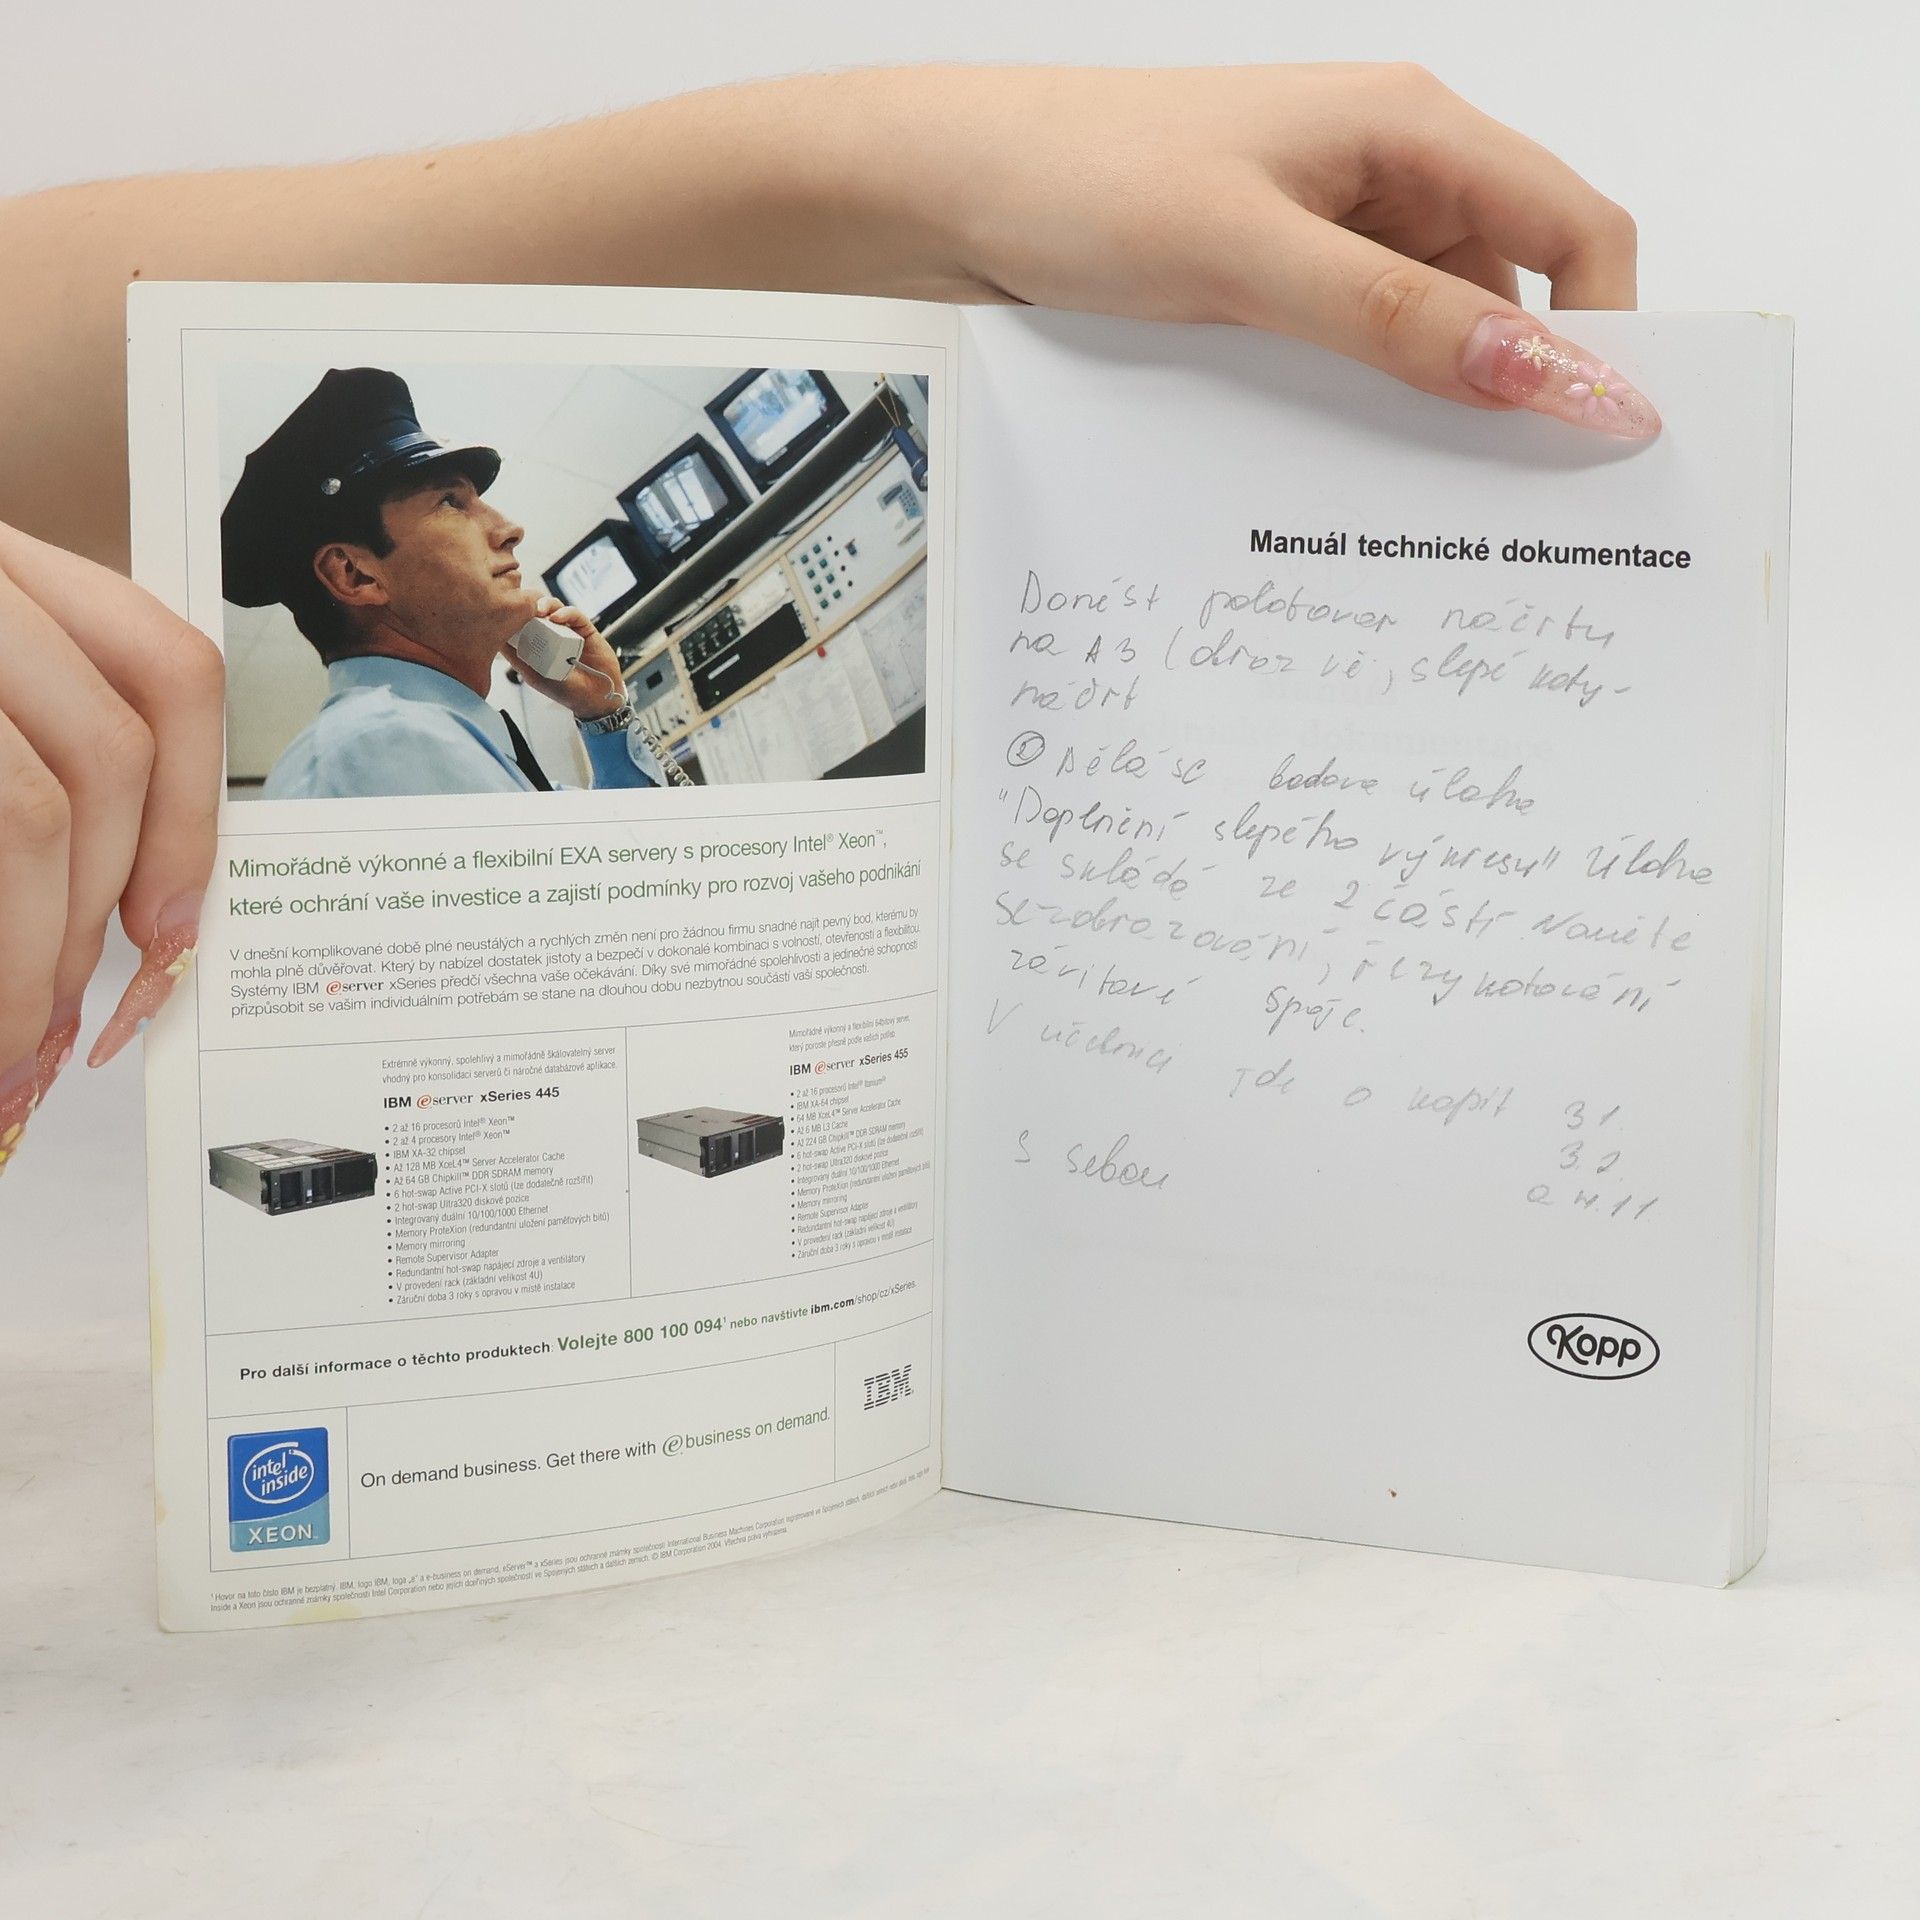 Mimořádně výkonné a flexibilní EXA servery s procesory Intel® Xeon™,
které ochrání vaše investice a zajistí podmínky pro rozvoj vašeho podnikání
V dnešní komplikované době plné neustálých a rychlých změn není pro žádnou firmu snadné najít pevný bod, kterému by
mohla plně důvěřovat. Který by nabízel dostatek jistoty a bezpečí v dokonalé kombinaci s volností, otevřeností a flexibilitou.
Systémy IBM eserver xSeries předčí všechna vaše očekávání. Díky své mimořádné spolehlivosti a jedinečné schopnosti
přizpůsobit se vašim individuálním potřebám se stane na dlouhou dobu nezbytnou součástí vaší společnosti.
Extrémně výkonný, spolehlivý a mimořádně škálovatelný server
vhodný pro konsolidaci serverů či náročné databázové aplikace.
IBM eserver xSeries 445
• 2 až 16 procesorů Intel® Xeon™
• 2 až 4 procesory Intel® Xeon™
• IBM XA-32 chipset
• Až 128 MB XceL4™ Server Accelerator Cache
• Až 64 GB Chipkill™ DDR SDRAM memory
• 6 hot-swap Active PCI-X slotů (lze dodatečně rozšířit)
• 2 hot-swap Ultra320 diskové pozice
• Integrovaný duální 10/100/1000 Ethernet
• Memory ProteXion (redundantní uložení paměťových bitů)
• Memory mirroring
• Remote Supervisor Adapter
• Redundantní hot-swap napájecí zdroje a ventilátory
• V provedení rack (základní velikost 4U)
• Záruční doba 3 roky s opravou v místě instalace
Mimořádně výkonný a flexibilní 64bitový server,
který poroste přesně podle vašich potřeb.
IBM eserver xSeries 455
• 2 až 16 procesorů Intel® Itanium®
• IBM XA-64 chipset
• 64 MB XceL4™ Server Accelerator Cache
• Až 6 MB L3 Cache
• Až 224 GB Chipkill™ DDR SDRAM memory
• 6 hot-swap Active PCI-X slotů (lze dodatečně rozšířit)
• 2 hot-swap Ultra320 diskové pozice
• Integrovaný duální 10/100/1000 Ethernet
• Memory ProteXion (redundantní uložení paměťových bitů)
• Memory mirroring
• Remote Supervisor Adapter
• Redundantní hot-swap napájecí zdroje a ventilátory
• V provedení rack (základní velikost 4U)
• Záruční doba 3 roky s opravou v místě instalace
Pro další informace o těchto produktech: Volejte 800 100 094¹ nebo navštivte ibm.com/shop/cz/xSeries.
intel
inside
XEON™
On demand business. Get there with e business on demand.
IBM
¹ Hovor na toto číslo IBM je bezplatný. IBM, logo IBM, loga „e“ a e-business on demand, eServer™ a xSeries jsou ochranné známky společnosti International Business Machines Corporation registrované ve Spojených státech
Inside a Xeon jsou ochranné známky společnosti Intel Corporation nebo jejích dceřiných společností ve Spojených státech a dalších zemích. © IBM Corporation 2004. Všechna práva vyhrazena.
Manuál technické dokumentace
Donést polotovar náčrtu
na A3 ( slepé koty -
náčrt
② Dělá se bodova úloha
"Doplnění slepého výkresu" Úloha
se skládá ze 2 částí
řezy kotování
závitové spoje.
V učebnici jde o kapit 3.1.
3.2
a 4.11
S sebou
Kopp